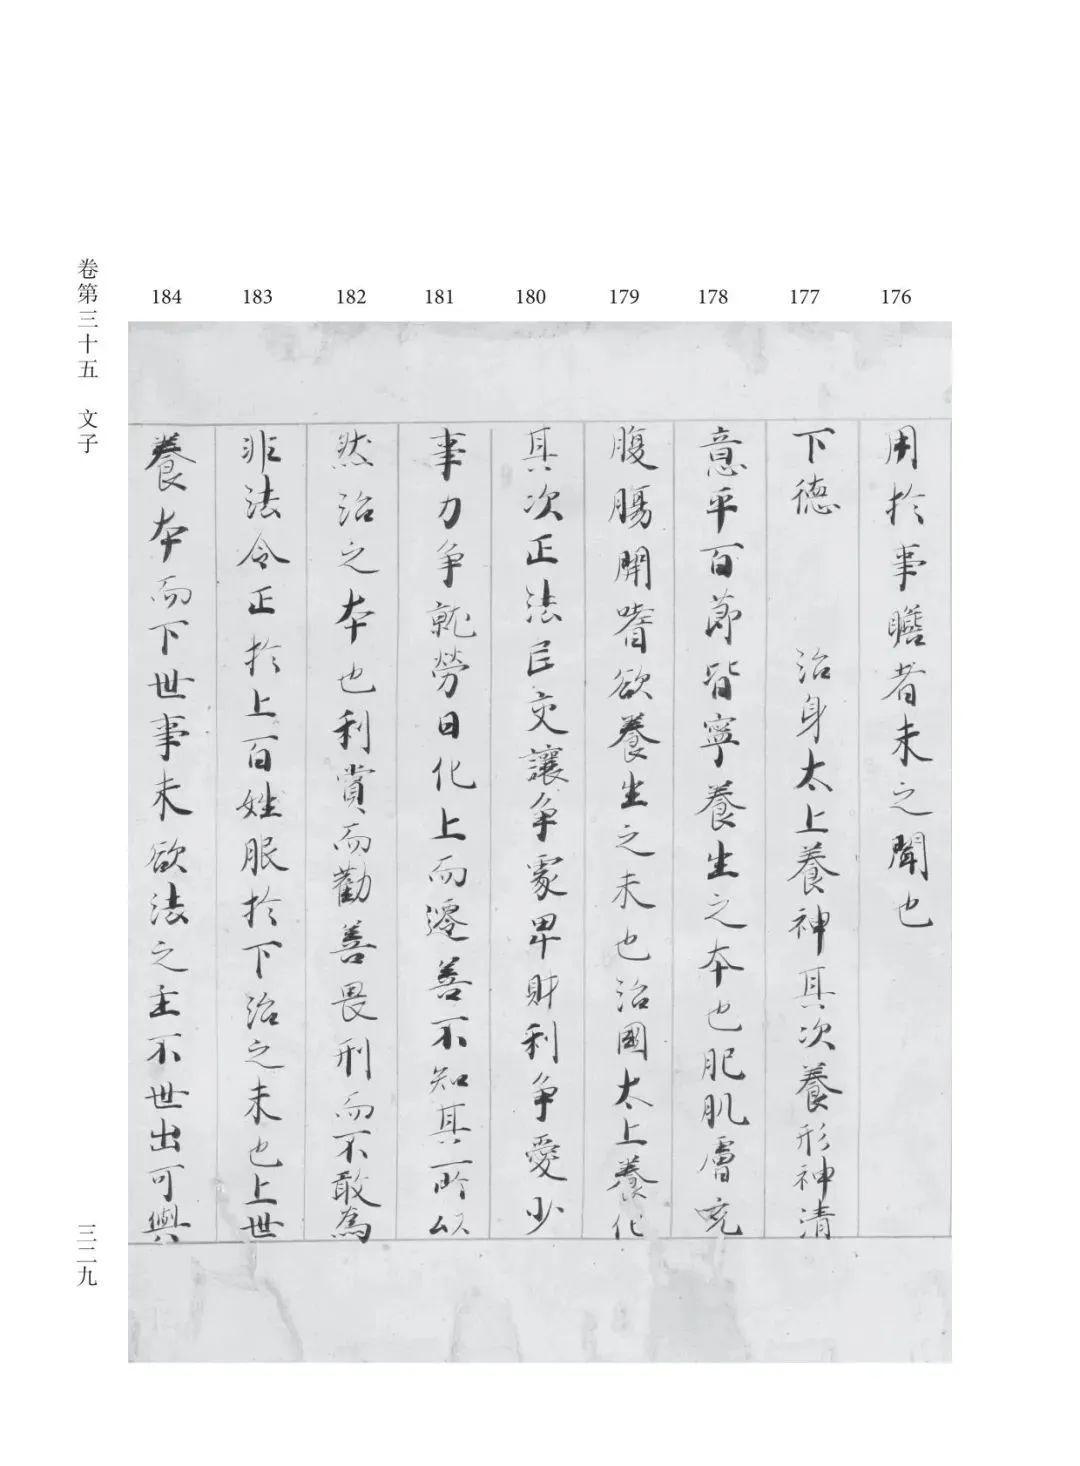 卷第三十五 文子
176
177
178
179
180
181
182
183
184
用於事贍者未之聞也
下德 治身太上養神其次養形神清
意平百節皆寧養生之本也肥肌膚充
腹腸開嗜欲養生之末也治國太上養化
其次正法民交讓爭處卑財利爭受少
事力爭就勞日化上而遷善不知其所以
然治之本也利賞而勸善畏刑而不敢為
非法令正於上百姓服於下治之末也上世
養本而下世事末欲法之主不世出可與
三二九